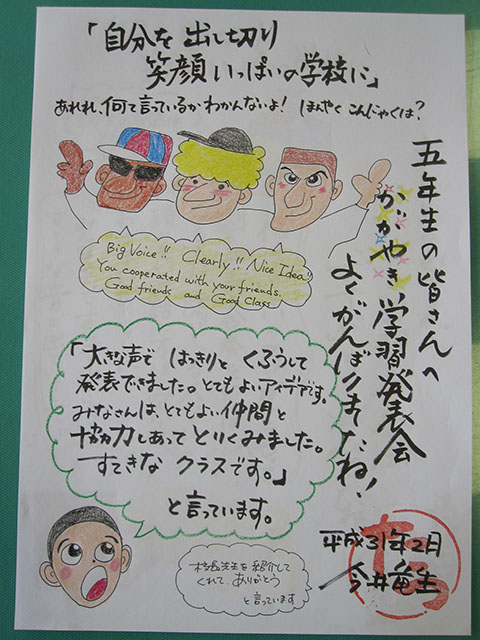 「自分を出し切り
笑顔いっぱいの学校に」
あれれ、何て言っているかわかんないよ！ ほんやくこんにゃくは？
五年生の皆さんへ
かがやき学習発表会
よくがんばりましたね！
Big Voice!! Clearly!! Nice Idea!!
You cooperated with your friends.
Good friends and Good Class
「大きな声で はっきりと くふうして
発表できました。とてもよいアイデアです。
みなさんは、とてもよい仲間と
協力しあって とりくみました。
すてきな クラスです。」
と言っています。
校長先生を紹介して
くれて、ありがとう
と言っています
平成31年2月
今井竜生